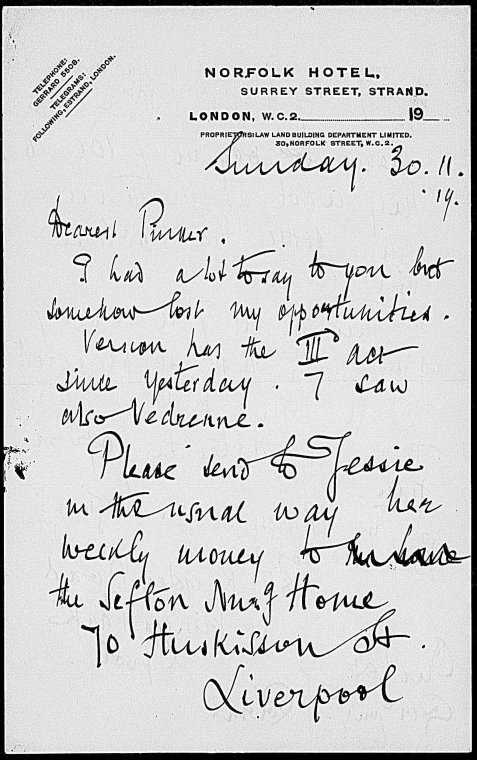 TELEPHONE:
GERRARD 5508.
TELEGRAMS:
FOLLOWING, ESTRAND, LONDON.
NORFOLK HOTEL,
SURREY STREET, STRAND.
LONDON, W.C.2. 19
PROPRIETORS: LAW LAND BUILDING DEPARTMENT LIMITED.
30, NORFOLK STREET, W.C.2.
Sunday. 30.11.
'19.
Dearest Pinker.
I had a lot to say to you but
somehow lost my opportunities.
Vernon has the III act
since yesterday. I saw
also Vedrenne.
Please send to Jessie
in the usual way her
weekly money to
the Sefton Nurg Home
70 Huskisson St.
Liverpool